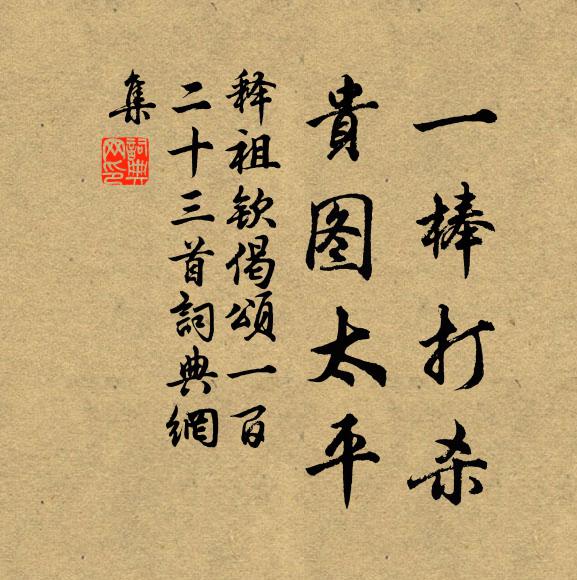 一棒打杀
貴图太平
释祖欽偈頌一百
二十三首詞典網
集
詞典網印